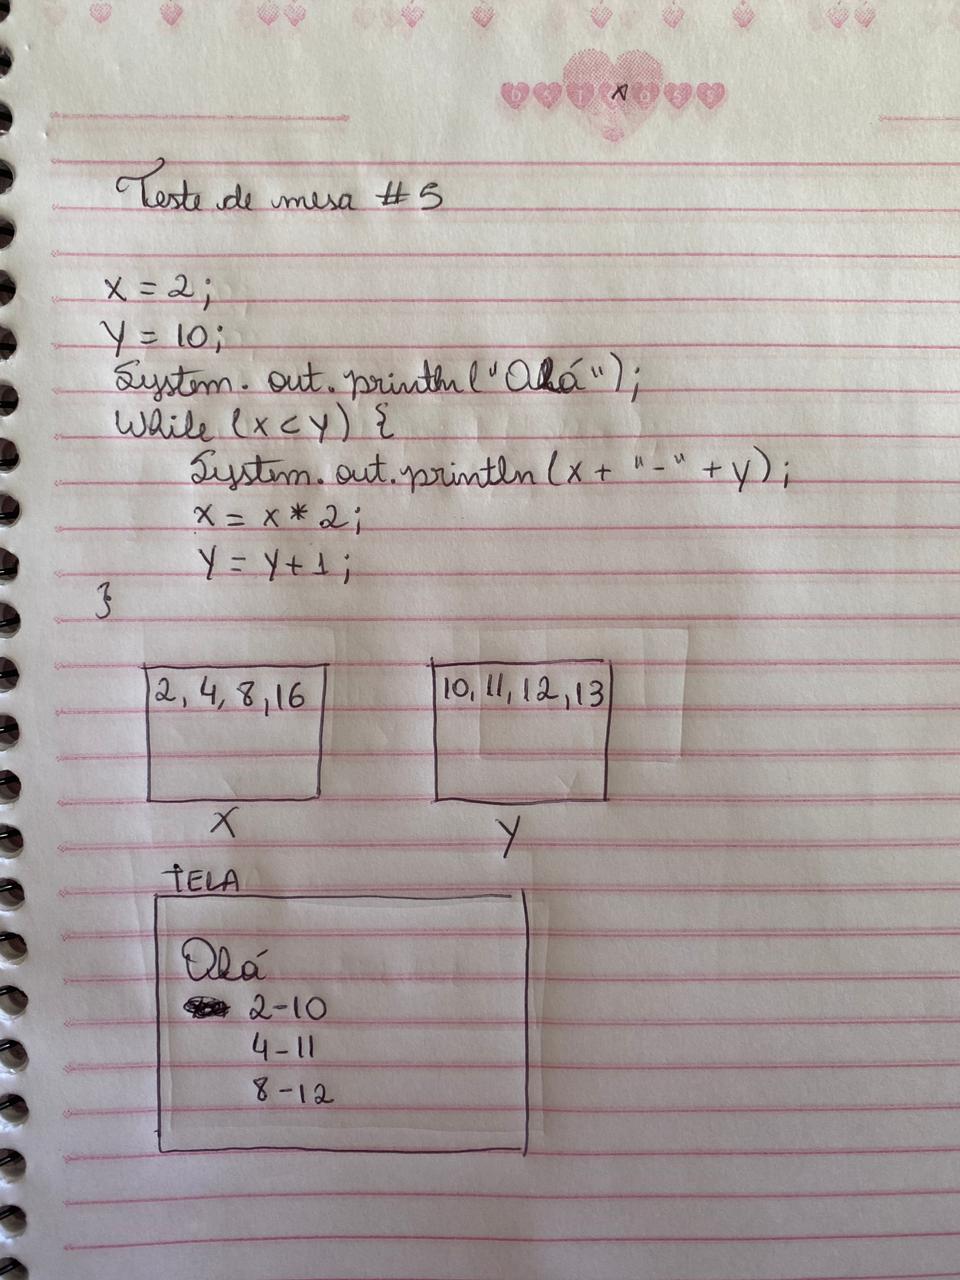 Teste de mesa #5
x = 2;
y = 10;
System.out.println("Olá");
While (x < y) {
System.out.println(x + "-" + y);
x = x * 2;
y = y + 1;
}
2, 4, 8, 16
10, 11, 12, 13
X
y
TELA
Olá
2-10
4-11
8-12